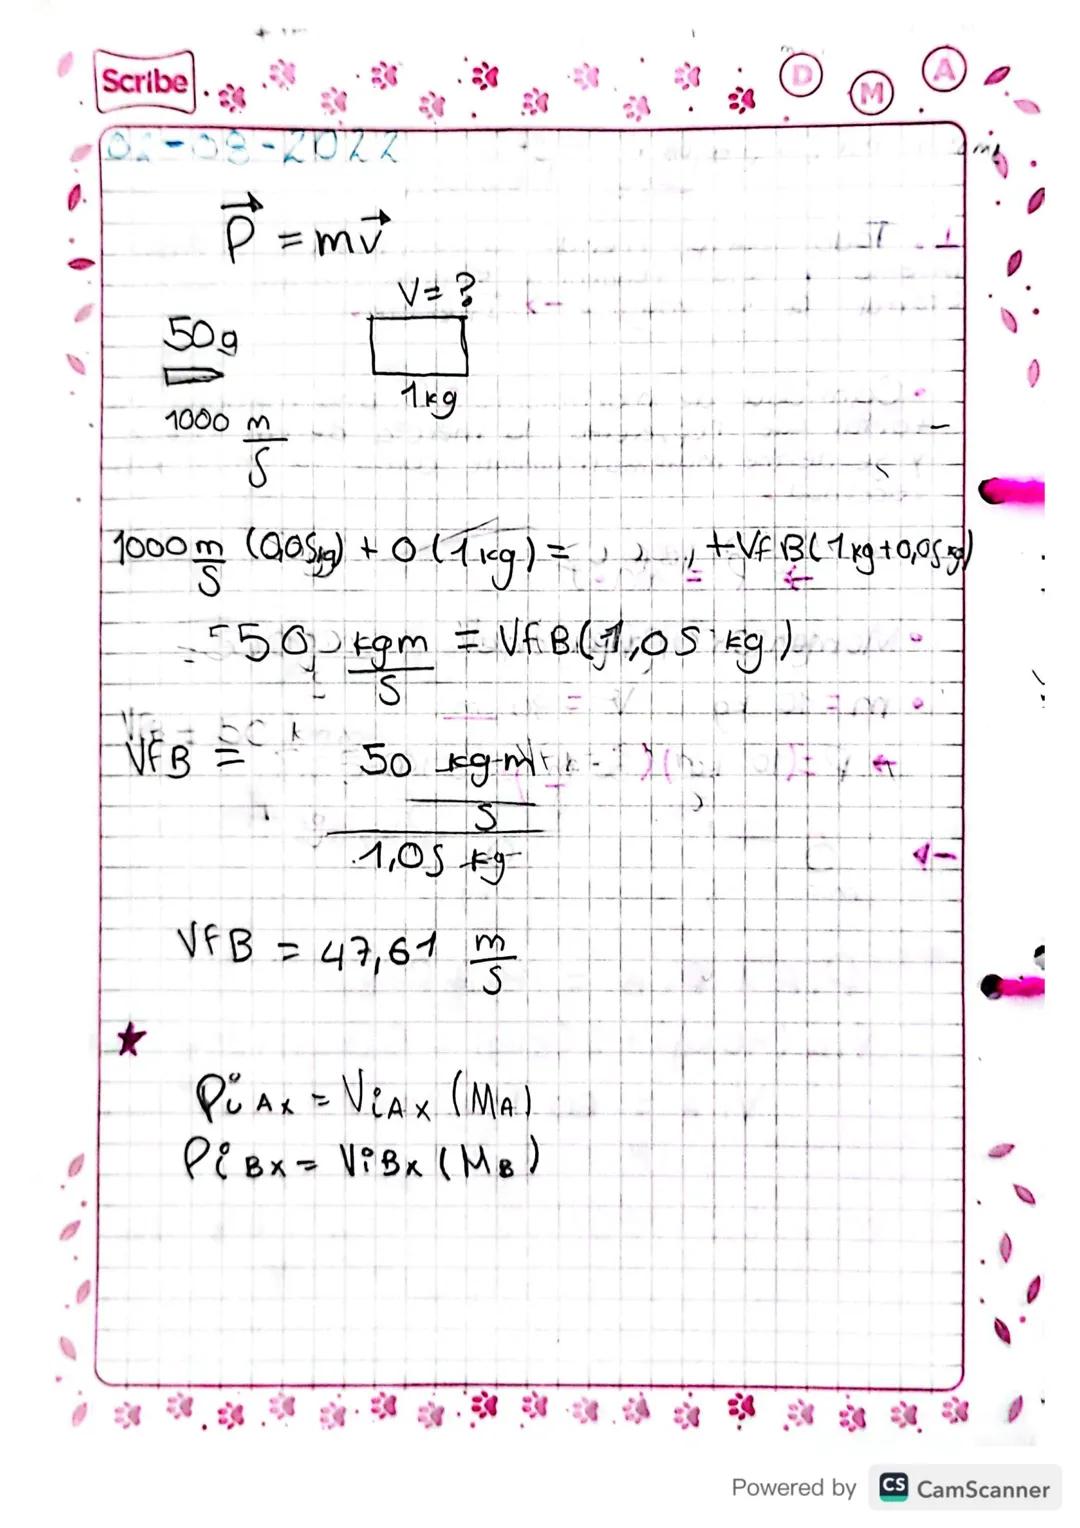 Scribe D M A
02-08-2022
P⃗ = mv⃗
V = ?
50g
1kg
1000 m/s
1000 m/s (0,05kg) + 0 (1kg) = + VfB (1kg + 0,05kg)
50 kgm/s = VfB (1,05 kg)
VfB = 50 kg·m/s / 1,05 kg
VfB = 47,61 m/s
★
Pi Ax = ViAx (MA)
Pi Bx = ViBx (MB)
Powered by CS CamScanner